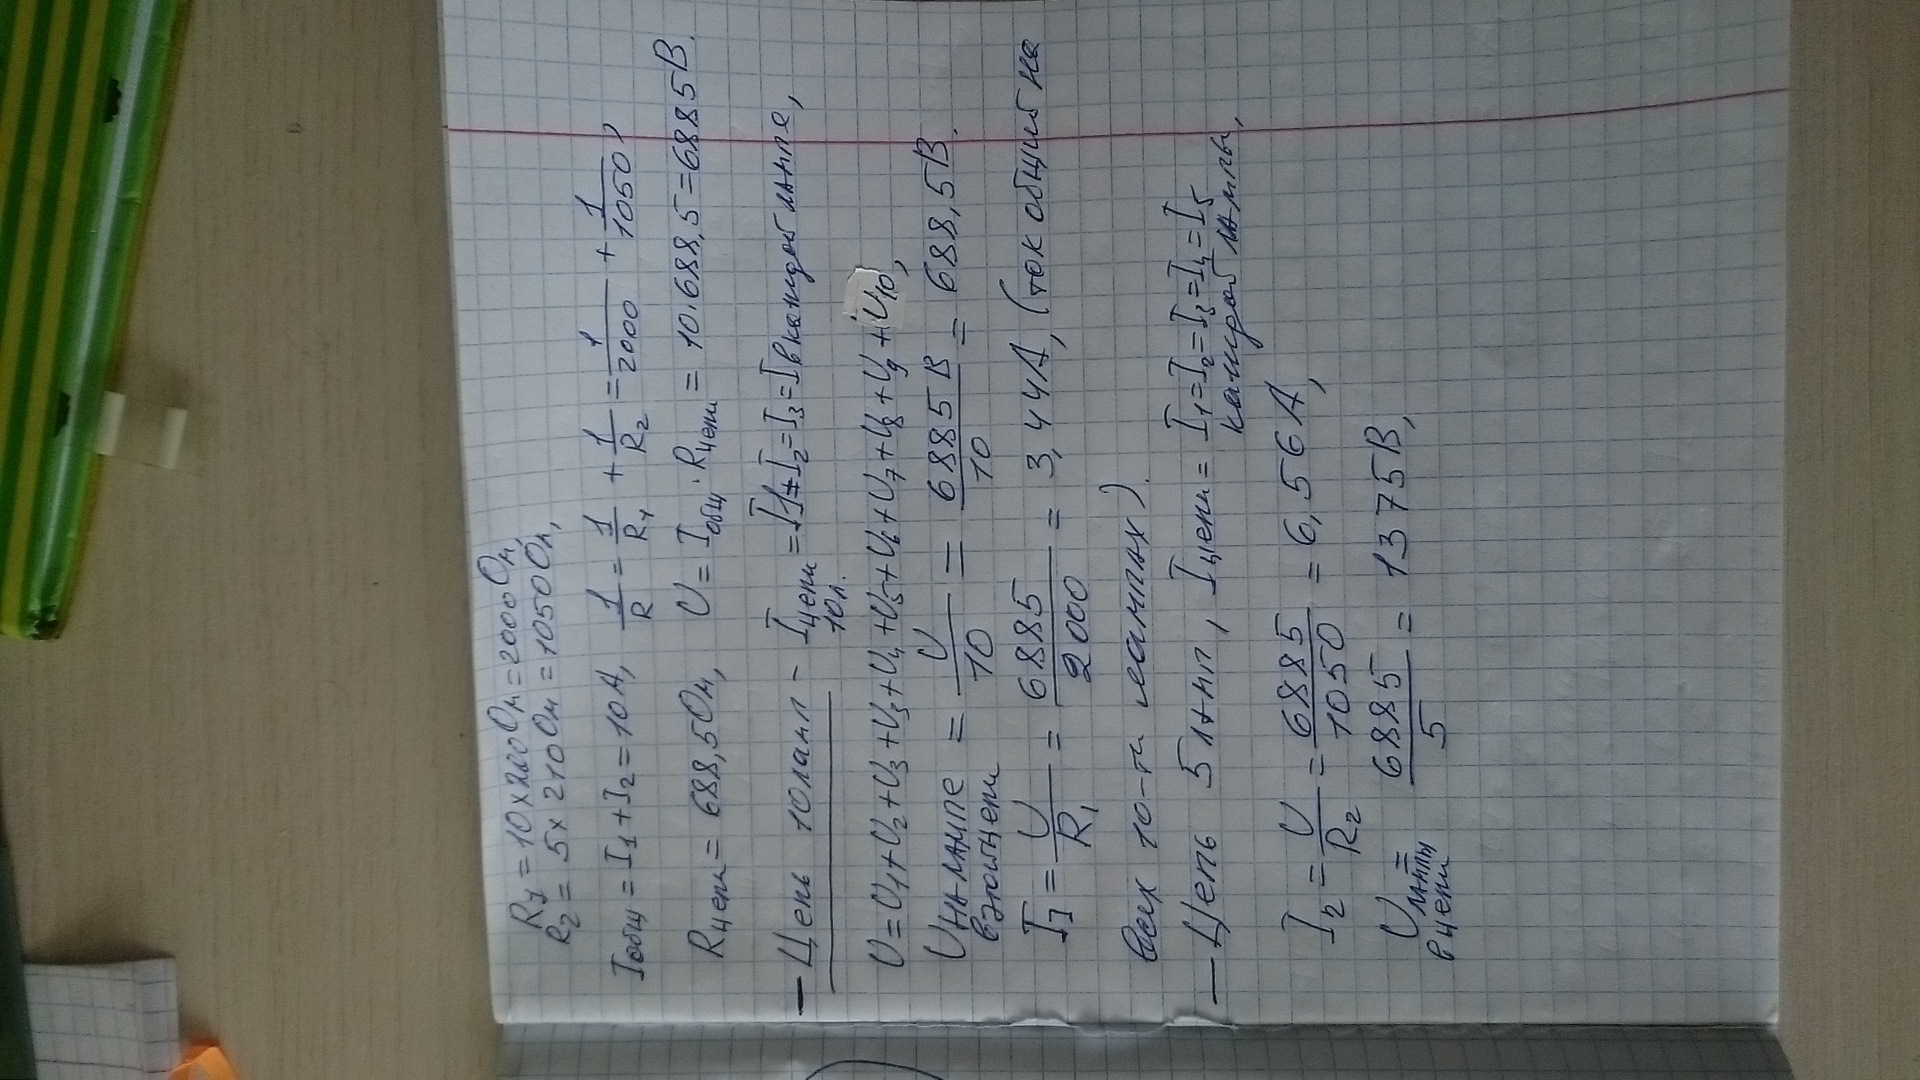 R₁ = 10 × 200 Ом = 2000 Ом,
R₂ = 5 × 210 Ом = 1050 Ом,
Iобщ = I₁ + I₂ = 10А, 1/R = 1/R₁ + 1/R₂ = 1/2000 + 1/1050,
Rцепи = 688,5 Ом, U = Iобщ · Rцепи = 10·688,5 = 6885В.
— Цепь 10 ламп – Iцепи 10л. = I1 = I₂ = I₃ = I в каждой лампе,
U = U₁ + U₂ + U₃ + U₃ + U₄ + U₅ + U₆ + U₇ + U₈ + U₉ + U₁₀,
Uна лампе в этой цепи = U/10 = 6885В/10 = 688,5В.
I₁ = U/R₁ = 6885/2000 = 3,44А, (ток общий на
всех 10-ти лампах).
— Цепь 5 ламп, Iцепи = I₁ = I₂ = I₃ = I₄ = I₅
каждой лампы,
I₂ = U/R₂ = 6885/1050 = 6,56А,
Uлампы в цепи = 6885/5 = 1375В,